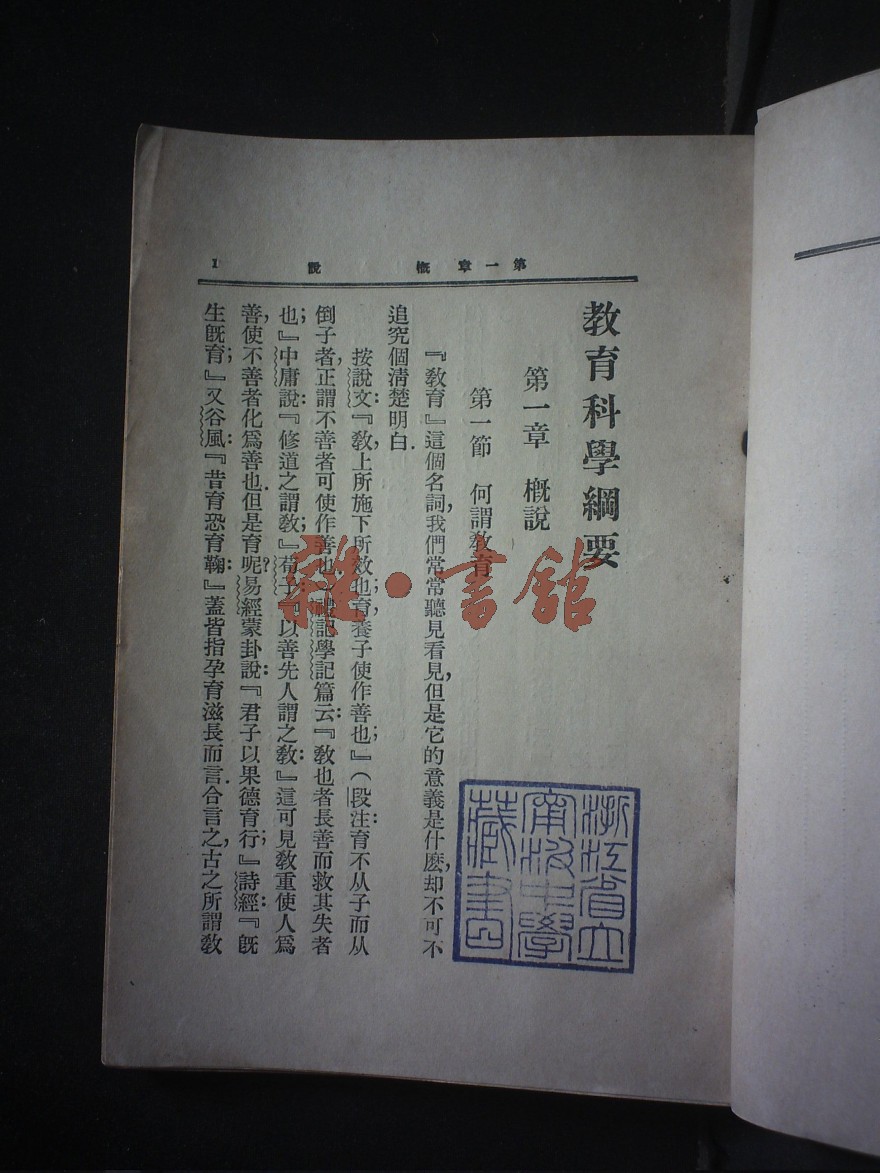 第一章 概說 1
教育科學綱要
第一章 概說
第一節 何謂教育
『教育』這個名詞，我們常常聽見看見，但是它的意義是什麽，却不可不
追究個清楚明白．
按說文：『敎，上所施下所效也；育，養子使作善也；』（段注：育不从子而从
倒子者，正謂不善者可使作善也．）禮記學記篇云：『敎也者，長善而救其失者
也；』中庸說：『修道之謂敎；』荀子：『以善先人謂之敎：』這可見敎重使人爲
善，使不善者化爲善也．但是育呢？易經蒙卦說：『君子以果德育行；』詩經：『旣
生旣育；』又谷風：『昔育恐育鞠：』蓋皆指孕育滋長而言．合言之，古之所謂敎
浙江省立
甯波中學
藏書印
雜·書館